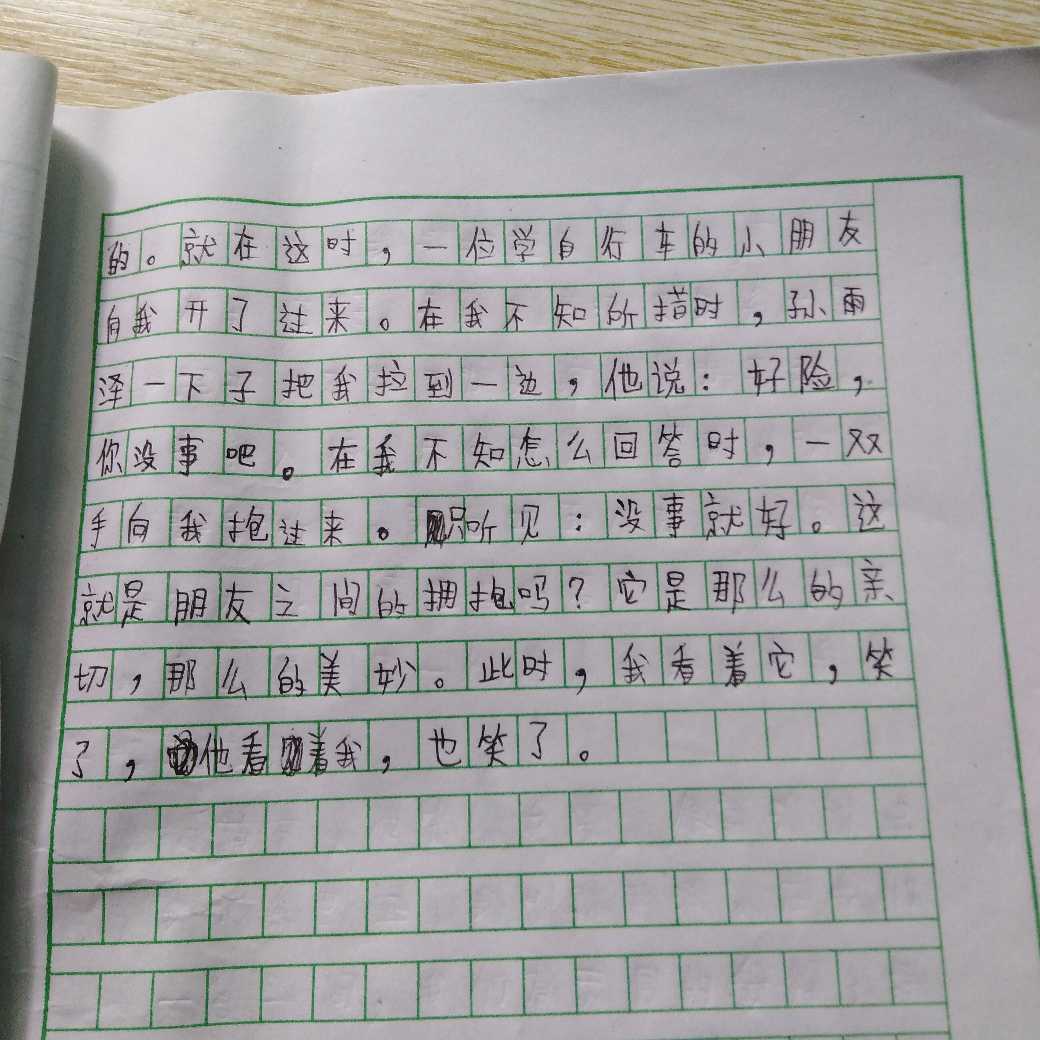 的。就在这时，一位学自行车的小朋友
自我开了过来。在我不知所措时，孙雨
泽一下子把我拉到一边，他说：好险，
你没事吧。在我不知怎么回答时，一双
手向我抱过来。只听见：没事就好。这
就是朋友之间的拥抱吗？它是那么的亲
切，那么的美妙。此时，我看着它，笑
了，他看着我，也笑了。